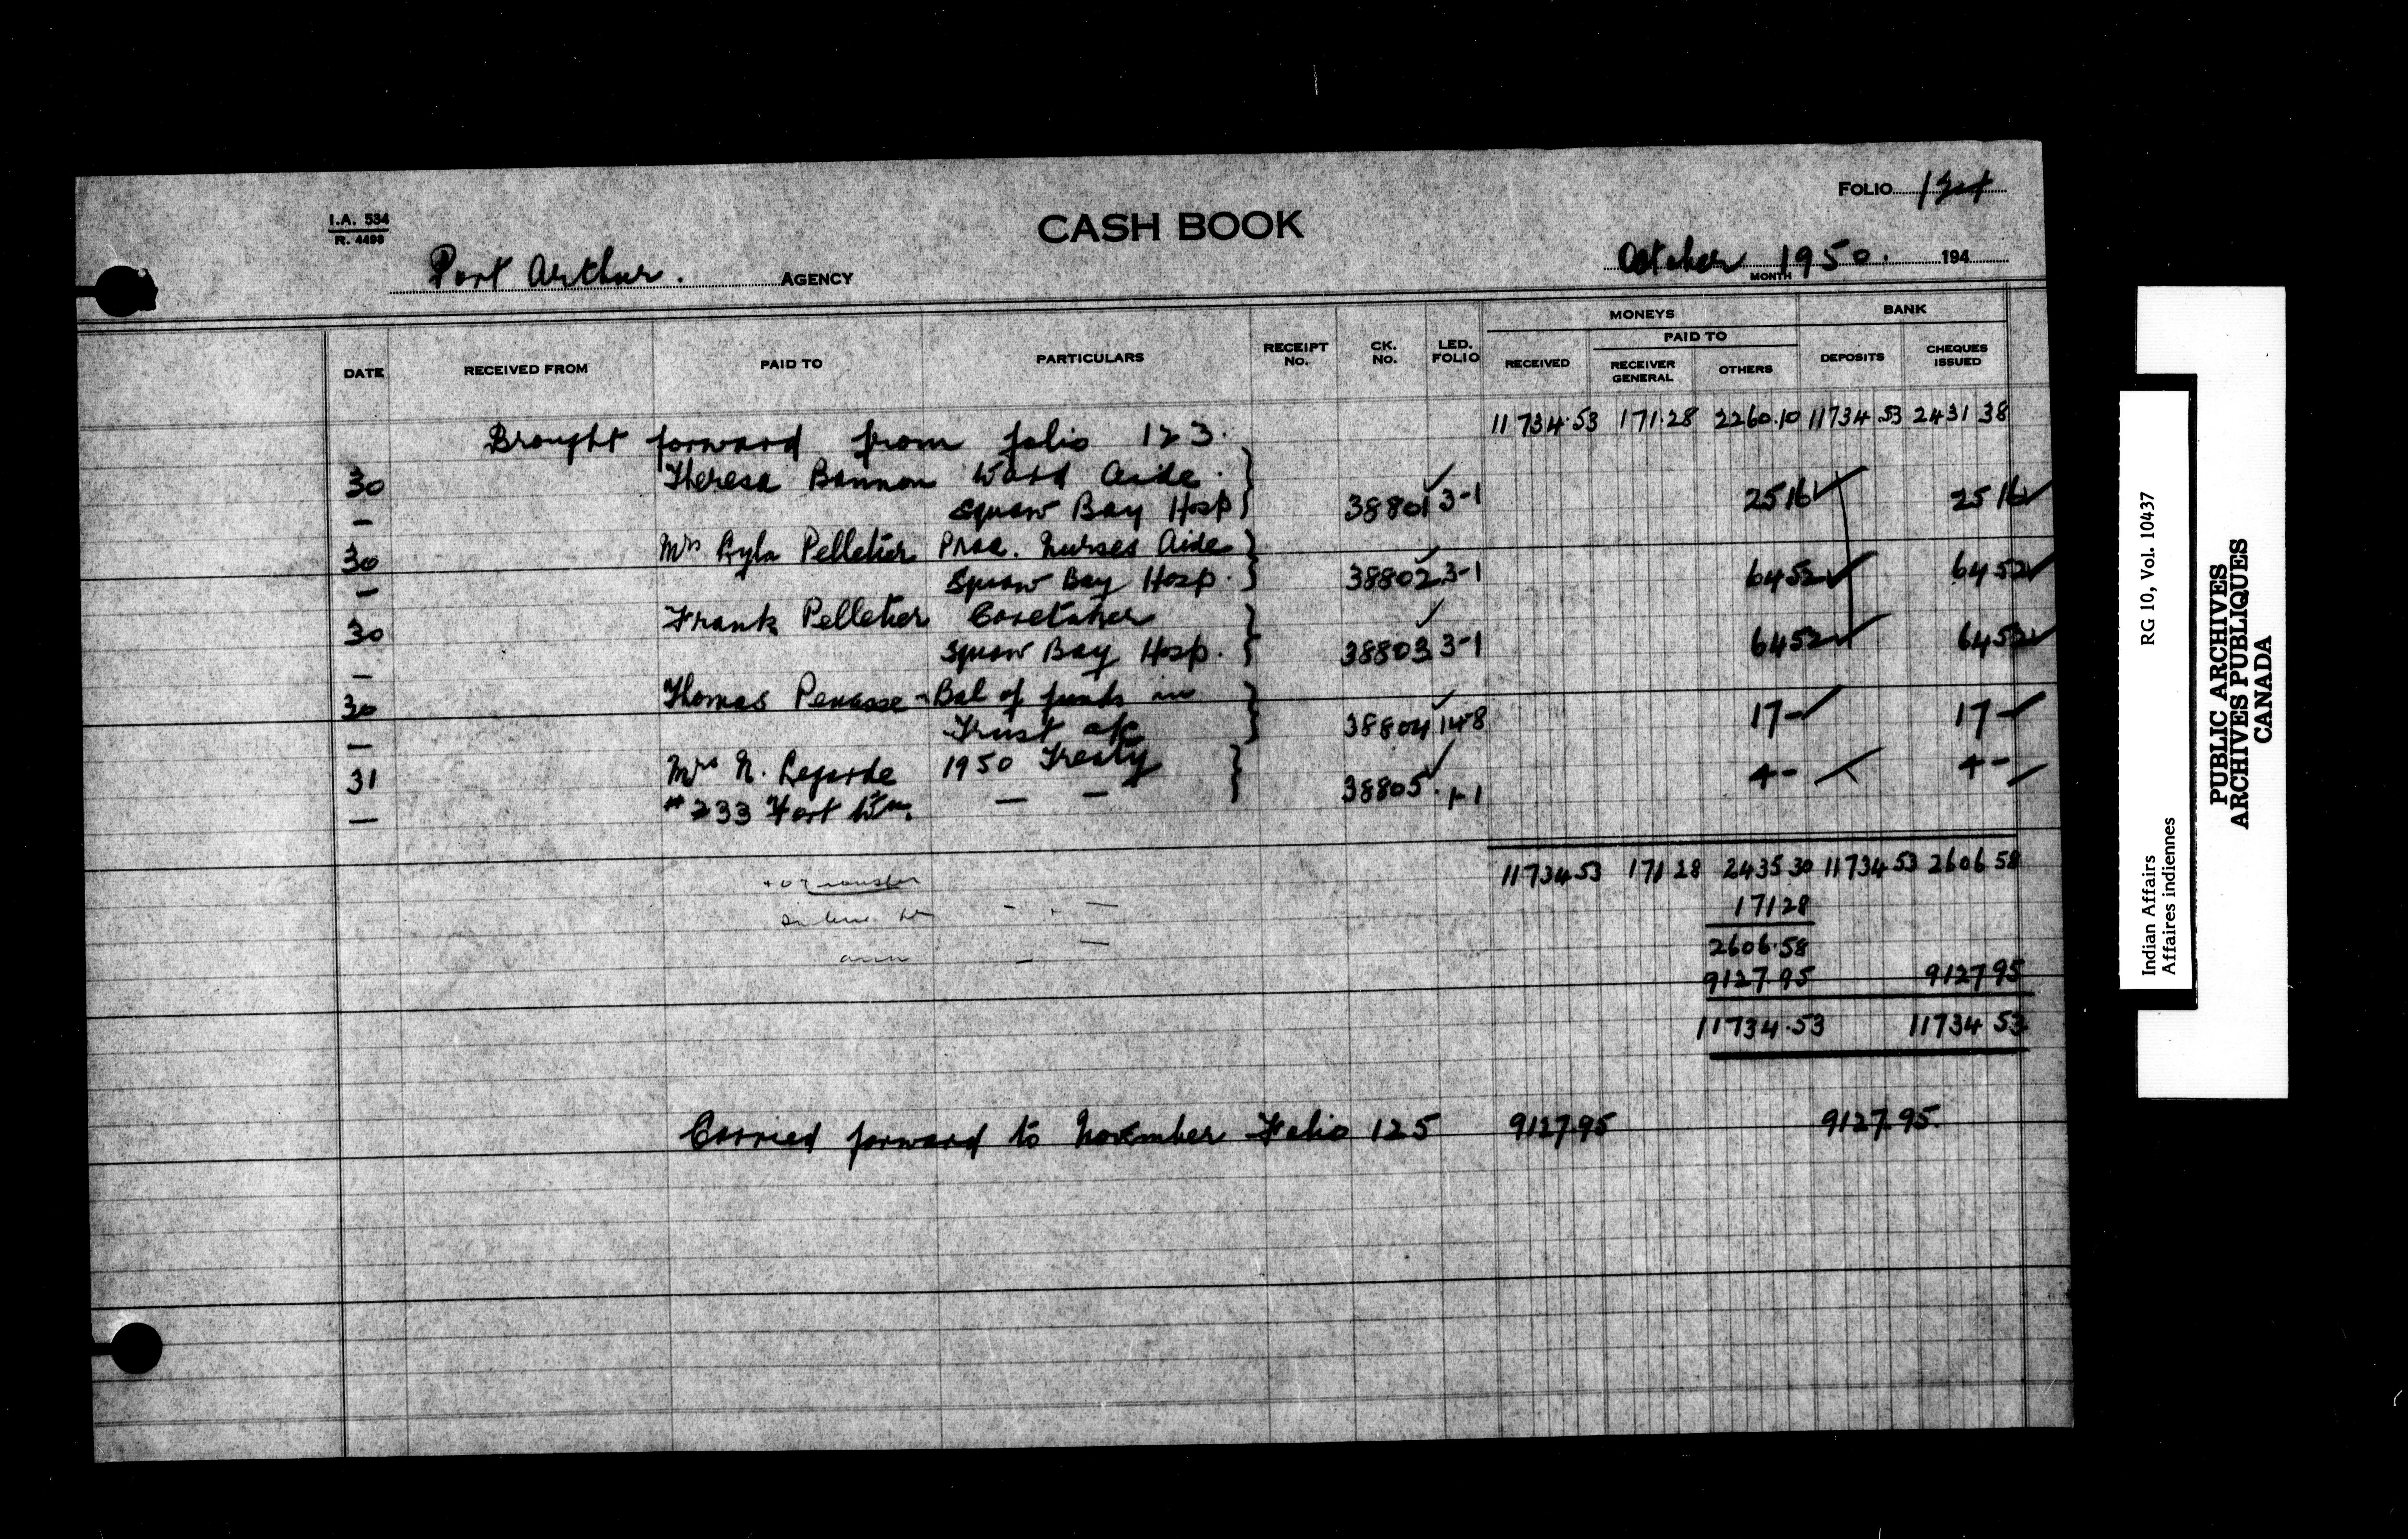 I.A. 534
R. 4498
CASH BOOK
FOLIO 124
Port Arthur. AGENCY
October 1950. MONTH 194
MONEYS BANK
PAID TO
DATE RECEIVED FROM PAID TO PARTICULARS RECEIPT No. CK. No. LED. FOLIO RECEIVED RECEIVER GENERAL OTHERS DEPOSITS CHEQUES ISSUED
Brought forward from folio 123. 11734.53 171.28 2260.10 11734.53 2431 38
30 Theresa Bannon Ward Aide.
— Squaw Bay Hosp 38801 3-1 25 16 25 16
30 Mrs Lyla Pelletier Prac. Nurses Aide
— Squaw Bay Hosp. 38802 3-1 64 52 64 52
30 Frank Pelletier Caretaker
— Squaw Bay Hosp. 38803 3-1 64 52 64 52
30 Thomas Penasse - Bal of funds in
— Trust a/c 38804 14-8 17 - 17 -
31 Mrs N. Legarde 1950 Treaty
— #233 Fort Wm. — — 38805. 1-1 4 - 4 -
11734 53 171 28 2435 30 11734 53 2606 58
171 28
2606.58
9127.95 9127 95
11734.53 11734 53
Carried forward to November Folio 125 9127.95 9127.95.
RG 10, Vol. 10437
Indian Affairs
Affaires indiennes
PUBLIC ARCHIVES
ARCHIVES PUBLIQUES
CANADA